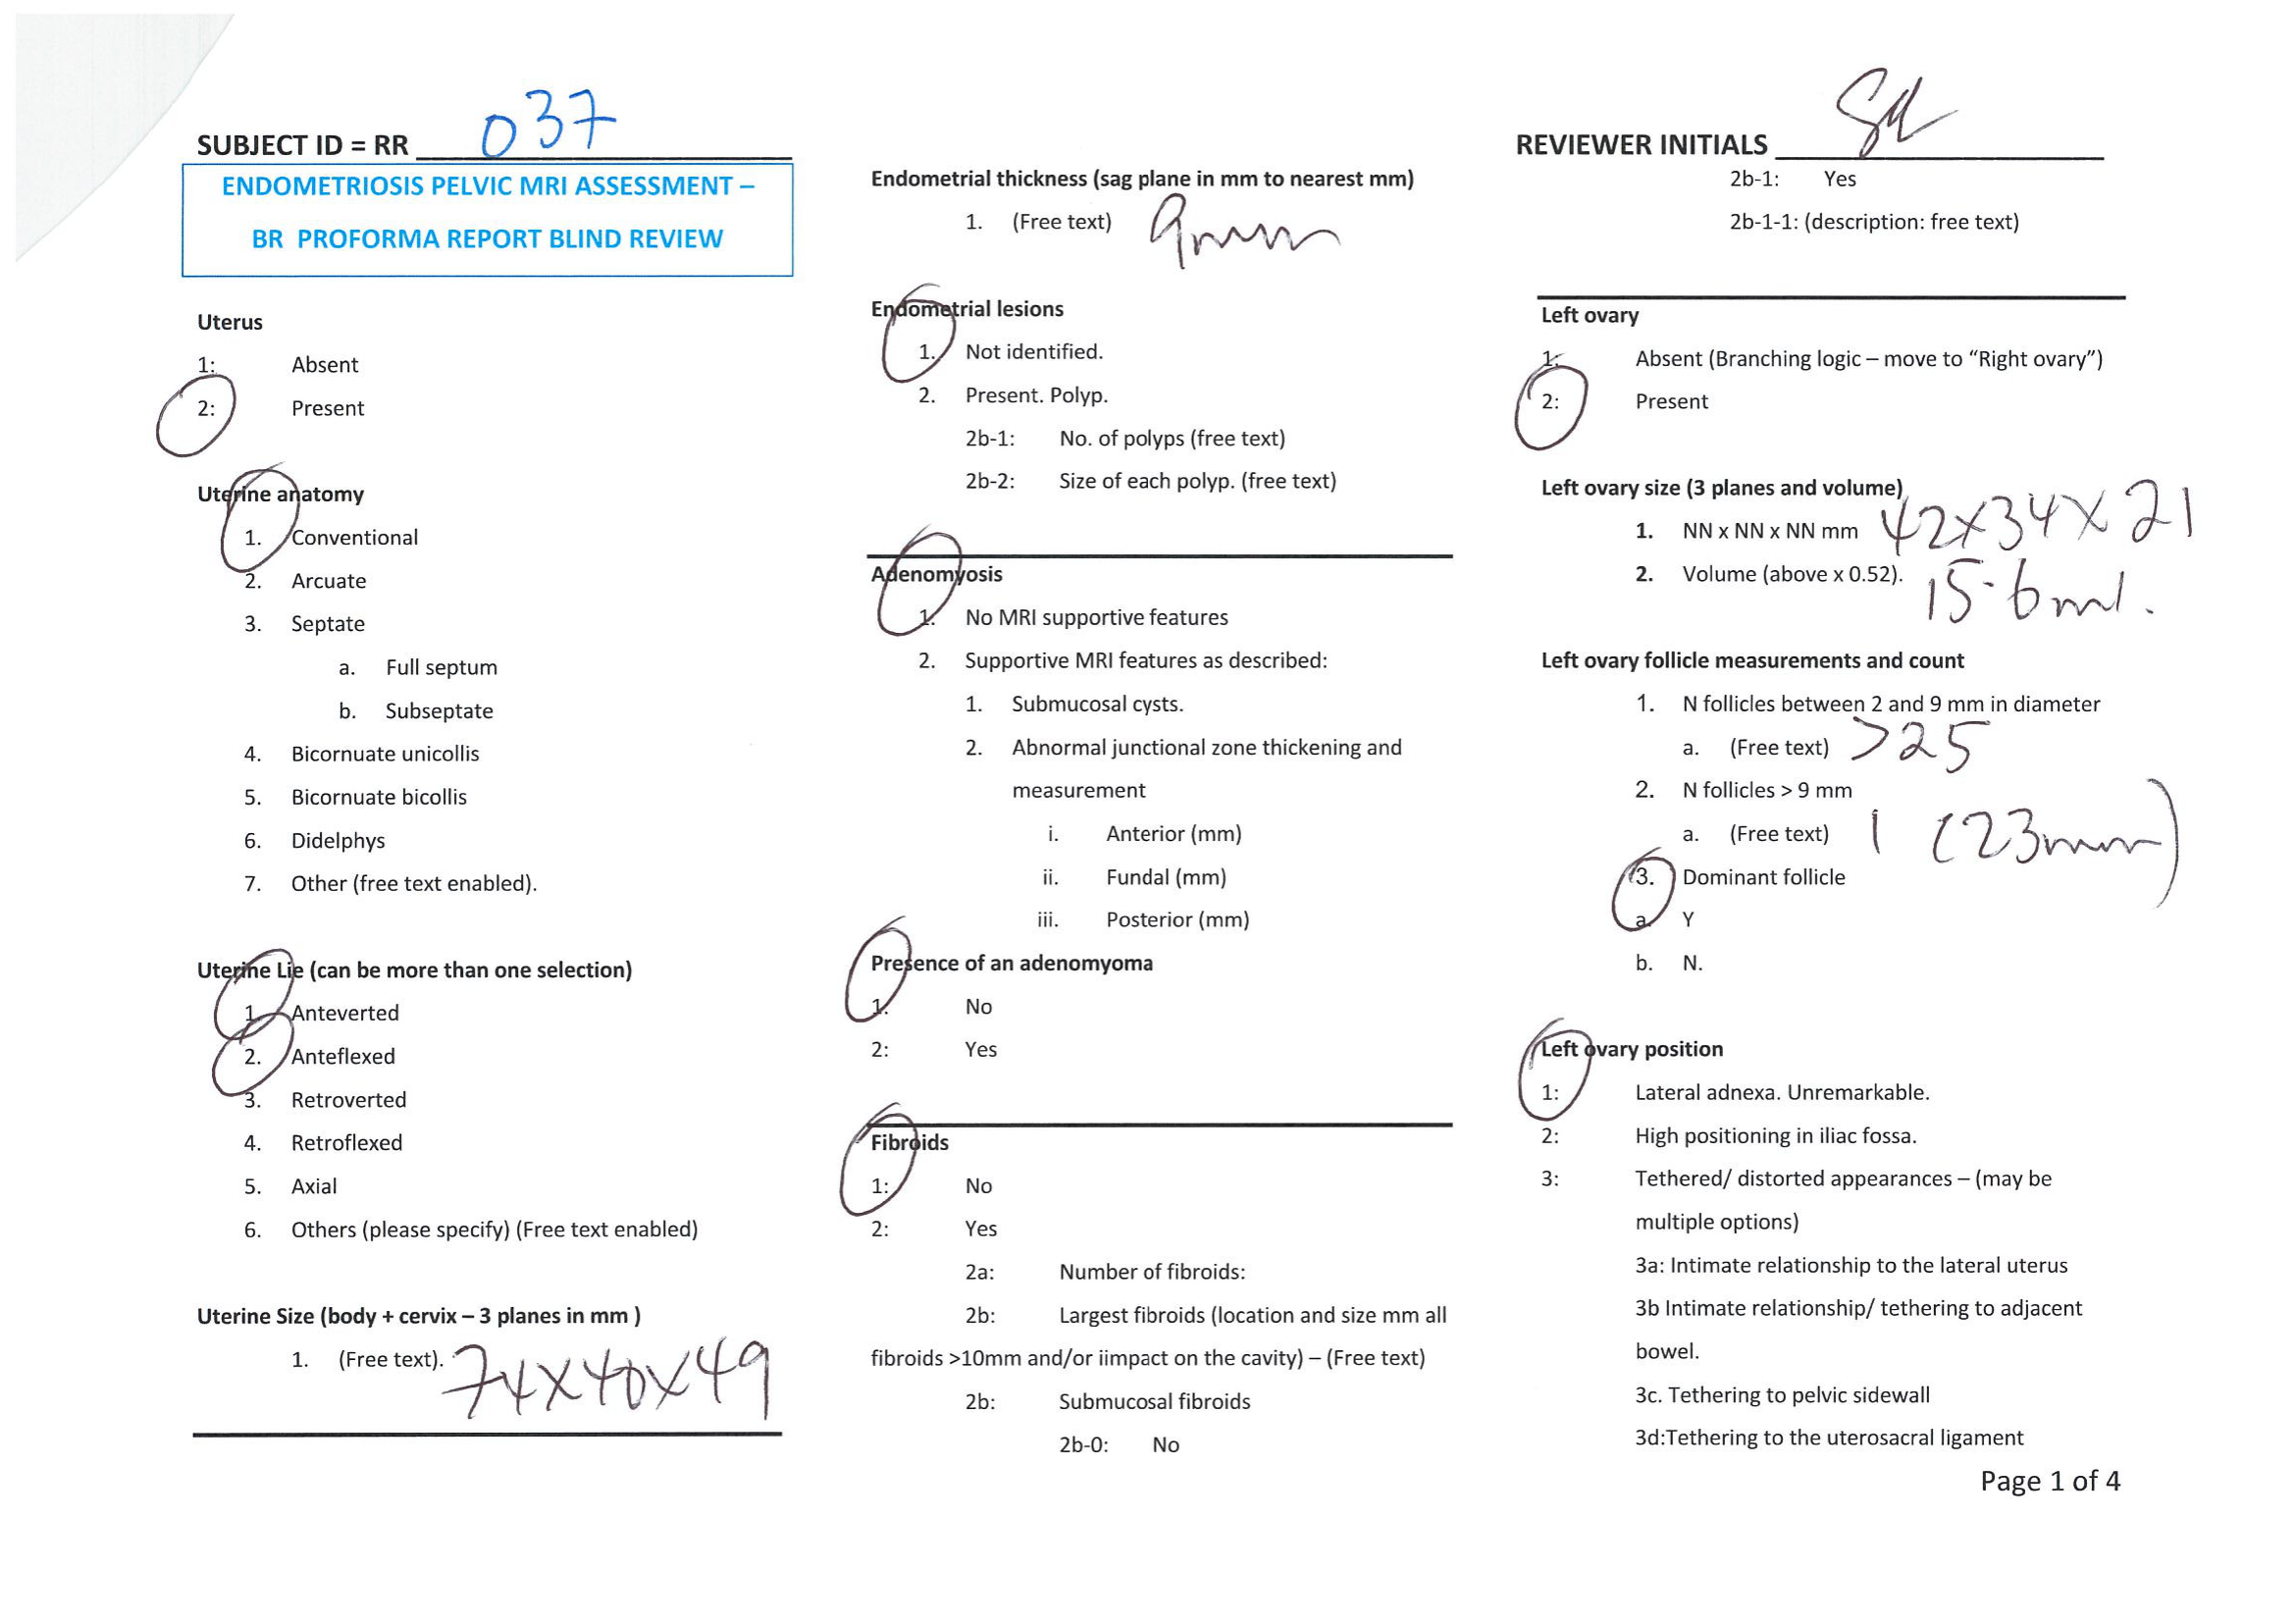 SUBJECT ID = RR 037
ENDOMETRIOSIS PELVIC MRI ASSESSMENT –
BR PROFORMA REPORT BLIND REVIEW
Uterus
1: Absent
2: Present
Uterine anatomy
1. Conventional
2. Arcuate
3. Septate
a. Full septum
b. Subseptate
4. Bicornuate unicollis
5. Bicornuate bicollis
6. Didelphys
7. Other (free text enabled).
Uterine Lie (can be more than one selection)
1. Anteverted
2. Anteflexed
3. Retroverted
4. Retroflexed
5. Axial
6. Others (please specify) (Free text enabled)
Uterine Size (body + cervix – 3 planes in mm )
1. (Free text). 74x40x49
Endometrial thickness (sag plane in mm to nearest mm)
1. (Free text) 9mm
Endometrial lesions
1. Not identified.
2. Present. Polyp.
2b-1: No. of polyps (free text)
2b-2: Size of each polyp. (free text)
Adenomyosis
1. No MRI supportive features
2. Supportive MRI features as described:
1. Submucosal cysts.
2. Abnormal junctional zone thickening and
measurement
i. Anterior (mm)
ii. Fundal (mm)
iii. Posterior (mm)
Presence of an adenomyoma
1. No
2: Yes
Fibroids
1: No
2: Yes
2a: Number of fibroids:
2b: Largest fibroids (location and size mm all
fibroids >10mm and/or iimpact on the cavity) – (Free text)
2b: Submucosal fibroids
2b-0: No
REVIEWER INITIALS
2b-1: Yes
2b-1-1: (description: free text)
Left ovary
1: Absent (Branching logic – move to “Right ovary”)
2: Present
Left ovary size (3 planes and volume)
1. NN x NN x NN mm 42x34x21
2. Volume (above x 0.52). 15.6ml.
Left ovary follicle measurements and count
1. N follicles between 2 and 9 mm in diameter
a. (Free text) >25
2. N follicles > 9 mm
a. (Free text) 1 (23mm)
3. Dominant follicle
a. Y
b. N.
Left ovary position
1: Lateral adnexa. Unremarkable.
2: High positioning in iliac fossa.
3: Tethered/ distorted appearances – (may be
multiple options)
3a: Intimate relationship to the lateral uterus
3b Intimate relationship/ tethering to adjacent
bowel.
3c. Tethering to pelvic sidewall
3d:Tethering to the uterosacral ligament
Page 1 of 4